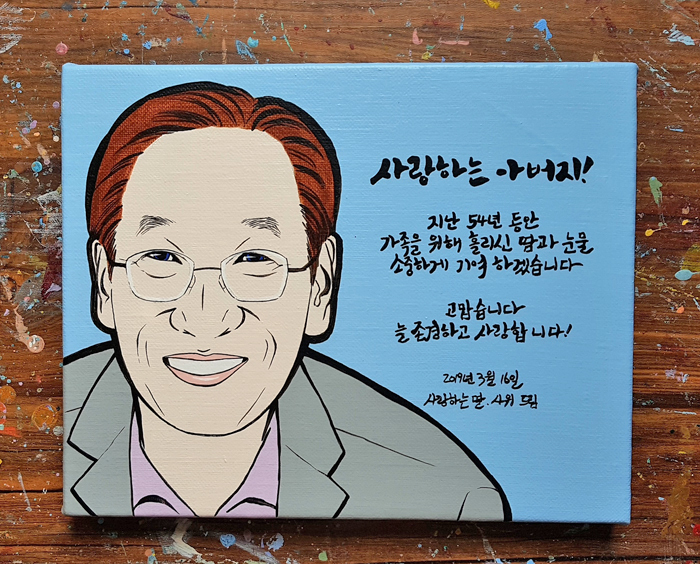 사랑하는 아버지!
지난 54년 동안
가족을 위해 흘리신 땀과 눈물
소중하게 기억 하겠습니다
고맙습니다
늘 존경하고 사랑합니다!
2019년 3월 16일
사랑하는 딸. 사위 드림